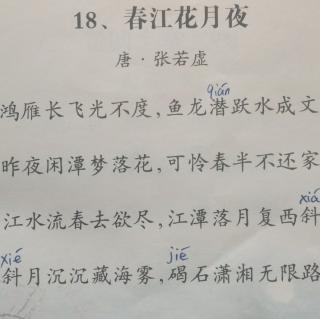 18、春江花月夜
唐·张若虚
qián
鸿雁长飞光不度,鱼龙潜跃水成文
昨夜闲潭梦落花,可怜春半不还家
xiá
江水流春去欲尽,江潭落月复西斜
xié jié
斜月沉沉藏海雾,碣石潇湘无限路